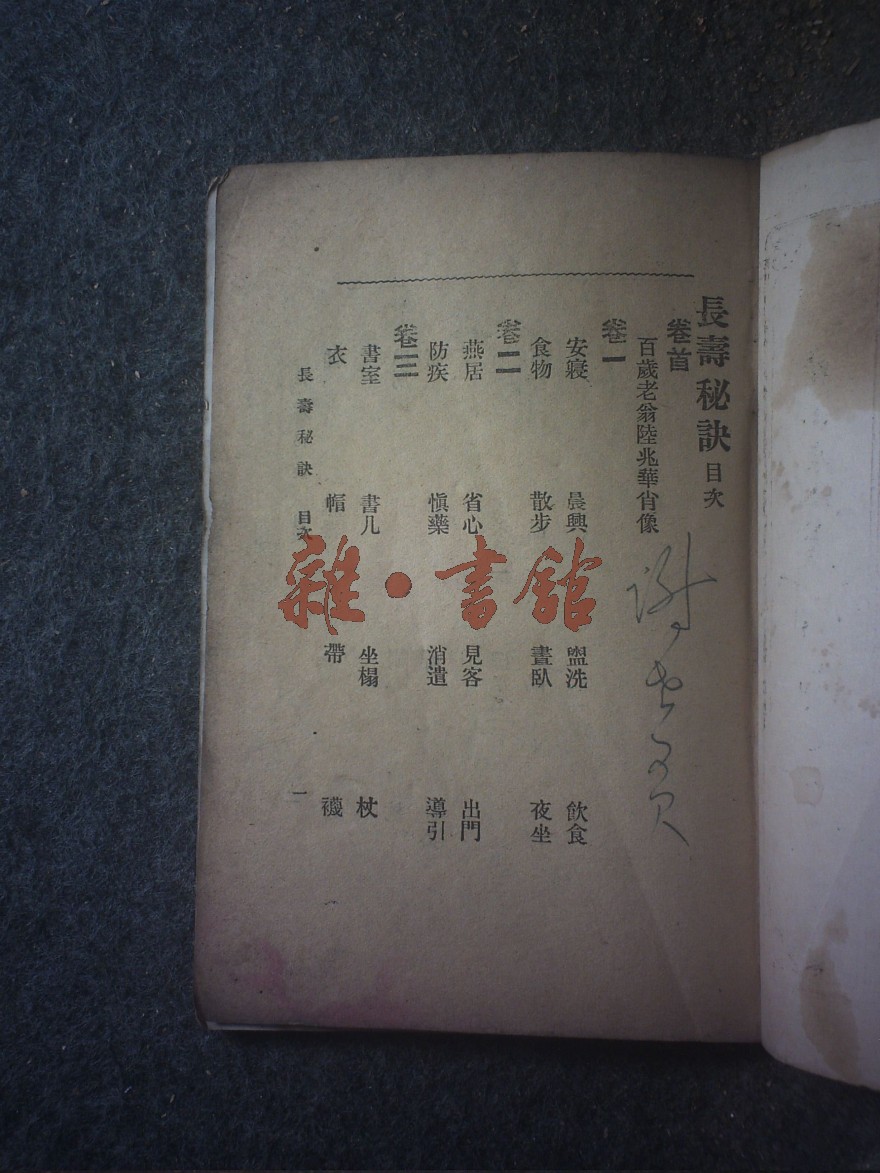 長壽秘訣 目次
卷首
百歲老翁陸兆華肖像
卷一
安寢 晨興 盥洗 飲食
食物 散步 晝臥 夜坐
卷二
燕居 省心 見客 出門
防疾 愼藥 消遣 導引
卷三
書室 書几 坐榻 杖
衣 帽 帶 襪
長壽秘訣 目次 一
雜·書館